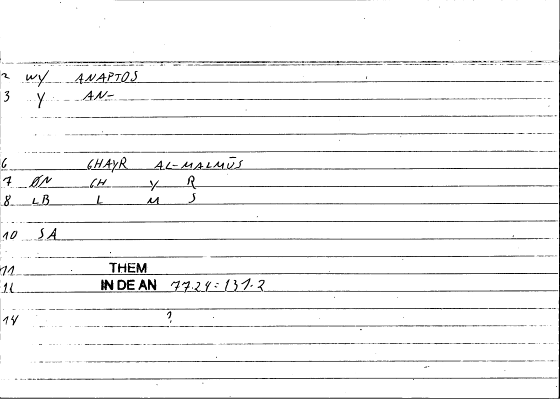 2 WY ANAPTOS
3 Y AN-
6 GHAYR AL-MALMŪS
7 ØN GH Y R
8 LB L M S
10 SA
11 THEM
12 IN DE AN 7724:131.2
14 ?